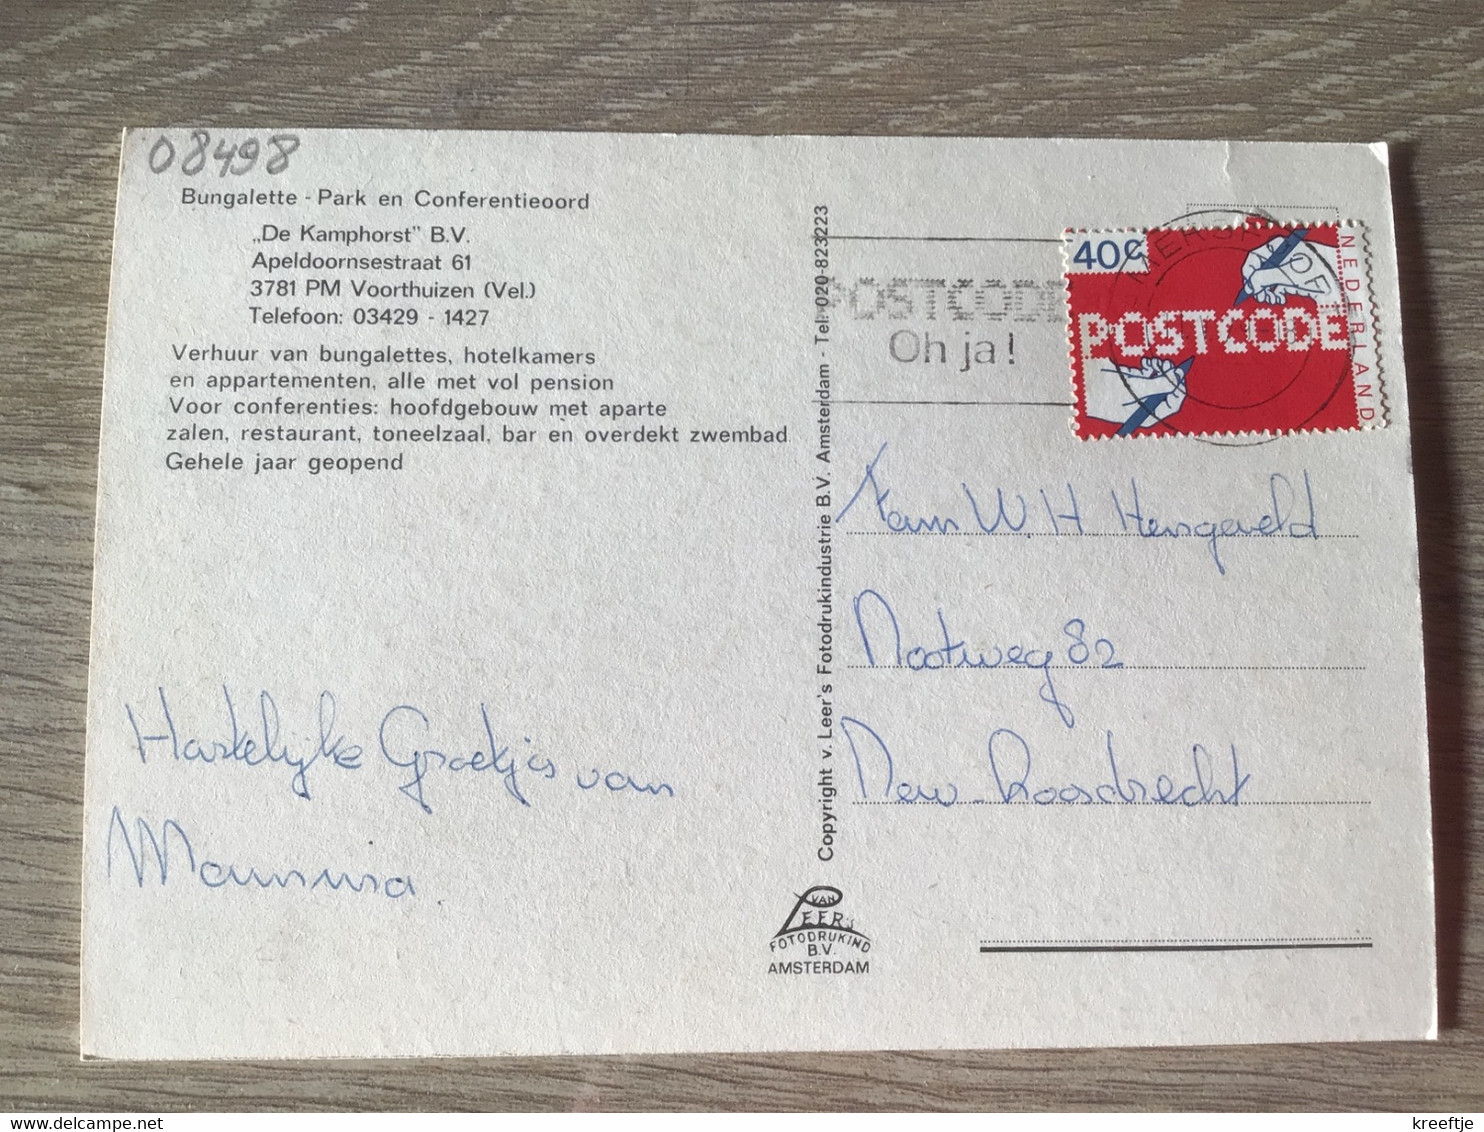 08498
Bungalette - Park en Conferentieoord
„De Kamphorst" B.V.
Apeldoornsestraat 61
3781 PM Voorthuizen (Vel.)
Telefoon: 03429 - 1427
Verhuur van bungalettes, hotelkamers
en appartementen, alle met vol pension
Voor conferenties: hoofdgebouw met aparte
zalen, restaurant, toneelzaal, bar en overdekt zwembad
Gehele jaar geopend
Hartelijke Groetjes van
Mamma
Copyright v. Leer's Fotodrukindustrie B.V. Amsterdam - Tel. 020-823223
VAN
LEER'S
FOTODRUKIND
B.V.
AMSTERDAM
POSTCODE
Oh ja!
40c
POSTCODE
NEDERLAND
Fam W.H. Hengeveld
Nootweg 82
New-Loosdrecht
kreeftje